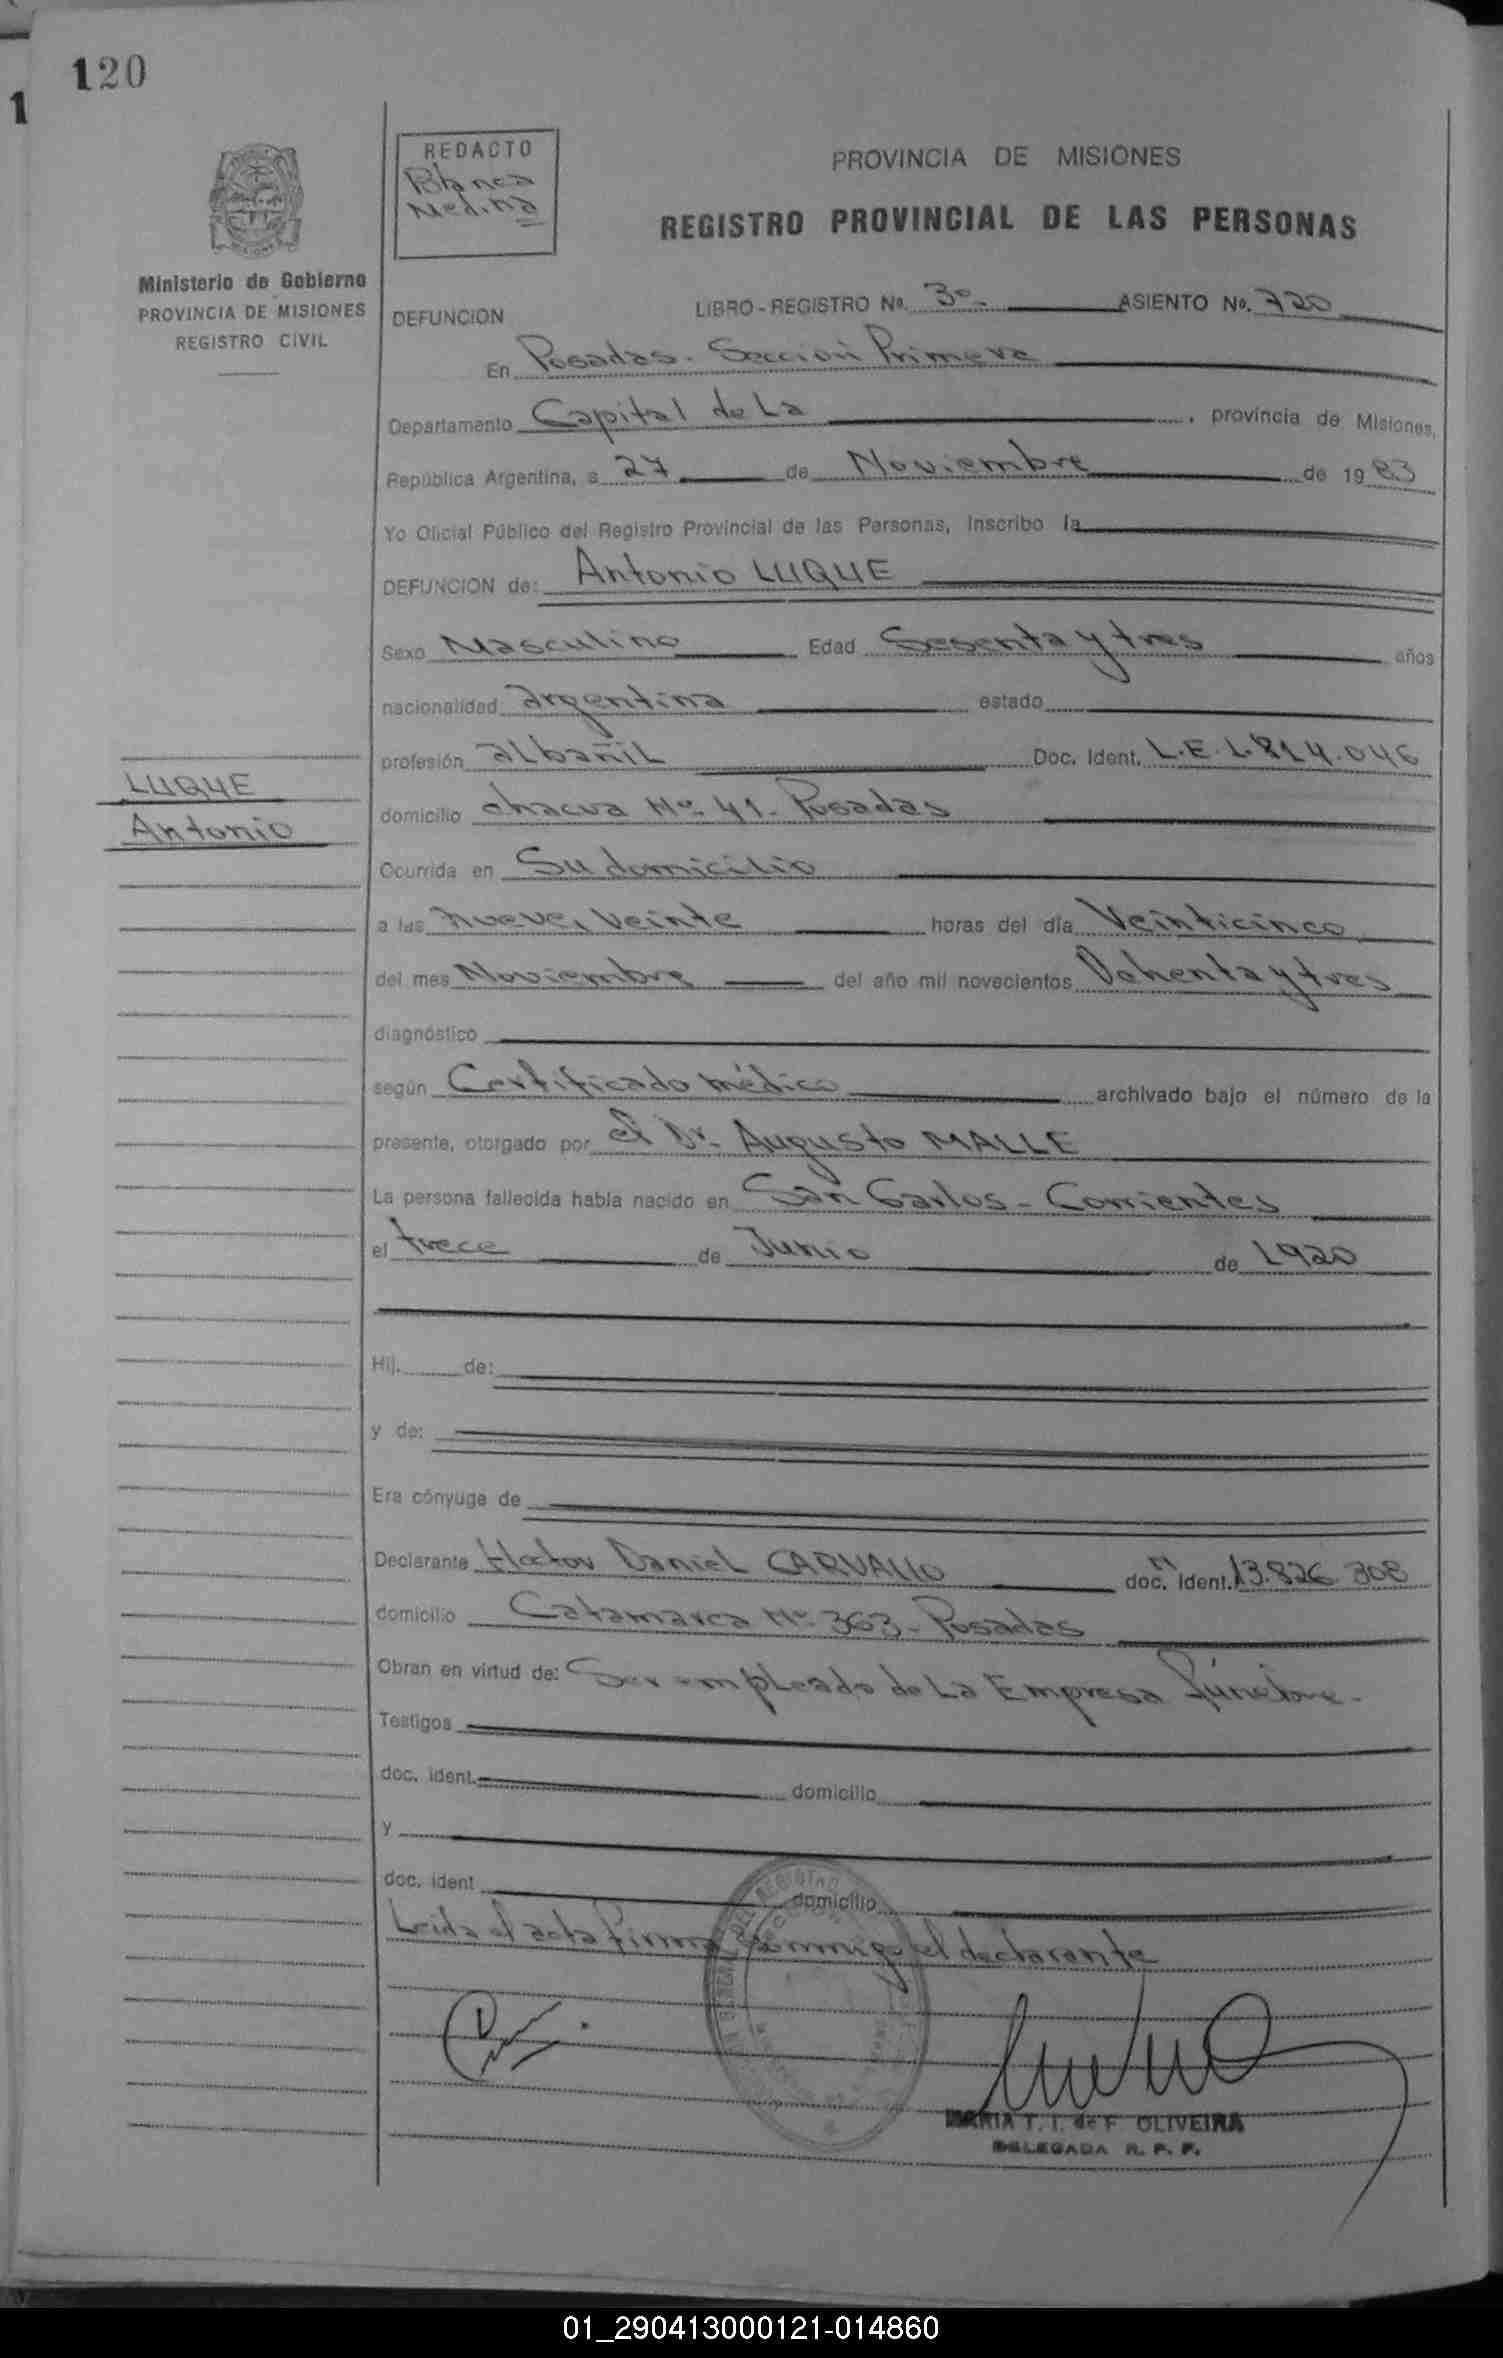 120
1
REDACTO
Blanca
Medina
PROVINCIA DE MISIONES
REGISTRO PROVINCIAL DE LAS PERSONAS
Ministerio de Gobierno
PROVINCIA DE MISIONES
REGISTRO CIVIL
DEFUNCION LIBRO-REGISTRO No. 3o- ASIENTO No. 720
En Posadas. Sección Primera
Departamento Capital de La , provincia de Misiones,
República Argentina, a 27 de Noviembre de 1983
Yo Oficial Público del Registro Provincial de las Personas, Inscribo la
DEFUNCION de: Antonio LUQUE
Sexo Masculino Edad Sesenta y tres años
nacionalidad argentina estado
profesión albañil Doc. Ident. L.E. 1.814.046
LUQUE
Antonio
domicilio chacra No. 41- Posadas
Ocurrida en Su domicilio
a las nueve, veinte horas del día Veinticinco
del mes Noviembre del año mil novecientos Ochenta y tres
diagnóstico
según Certificado médico archivado bajo el número de la
presente, otorgado por el Dr. Augusto MALLE
La persona fallecida había nacido en San Carlos - Corrientes
el trece de Junio de 1920
Hij. de:
y de:
Era cónyuge de
Declarante Hector Daniel CARVALLO doc. ident. 13.826.308
domicilio Catamarca No. 363- Posadas
Obran en virtud de: Ser empleado de La Empresa fúnebre-
Testigos
doc. ident. domicilio
y
doc. ident domicilio
Leida el acta firma conmigo el declarante
MARIA T. I. de F. OLIVEIRA
DELEGADA R. P. P.
01_290413000121-014860